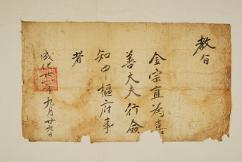 教旨
金宗直為嘉
善大夫行僉
知中樞府事
者
成化廿年九月廿六日